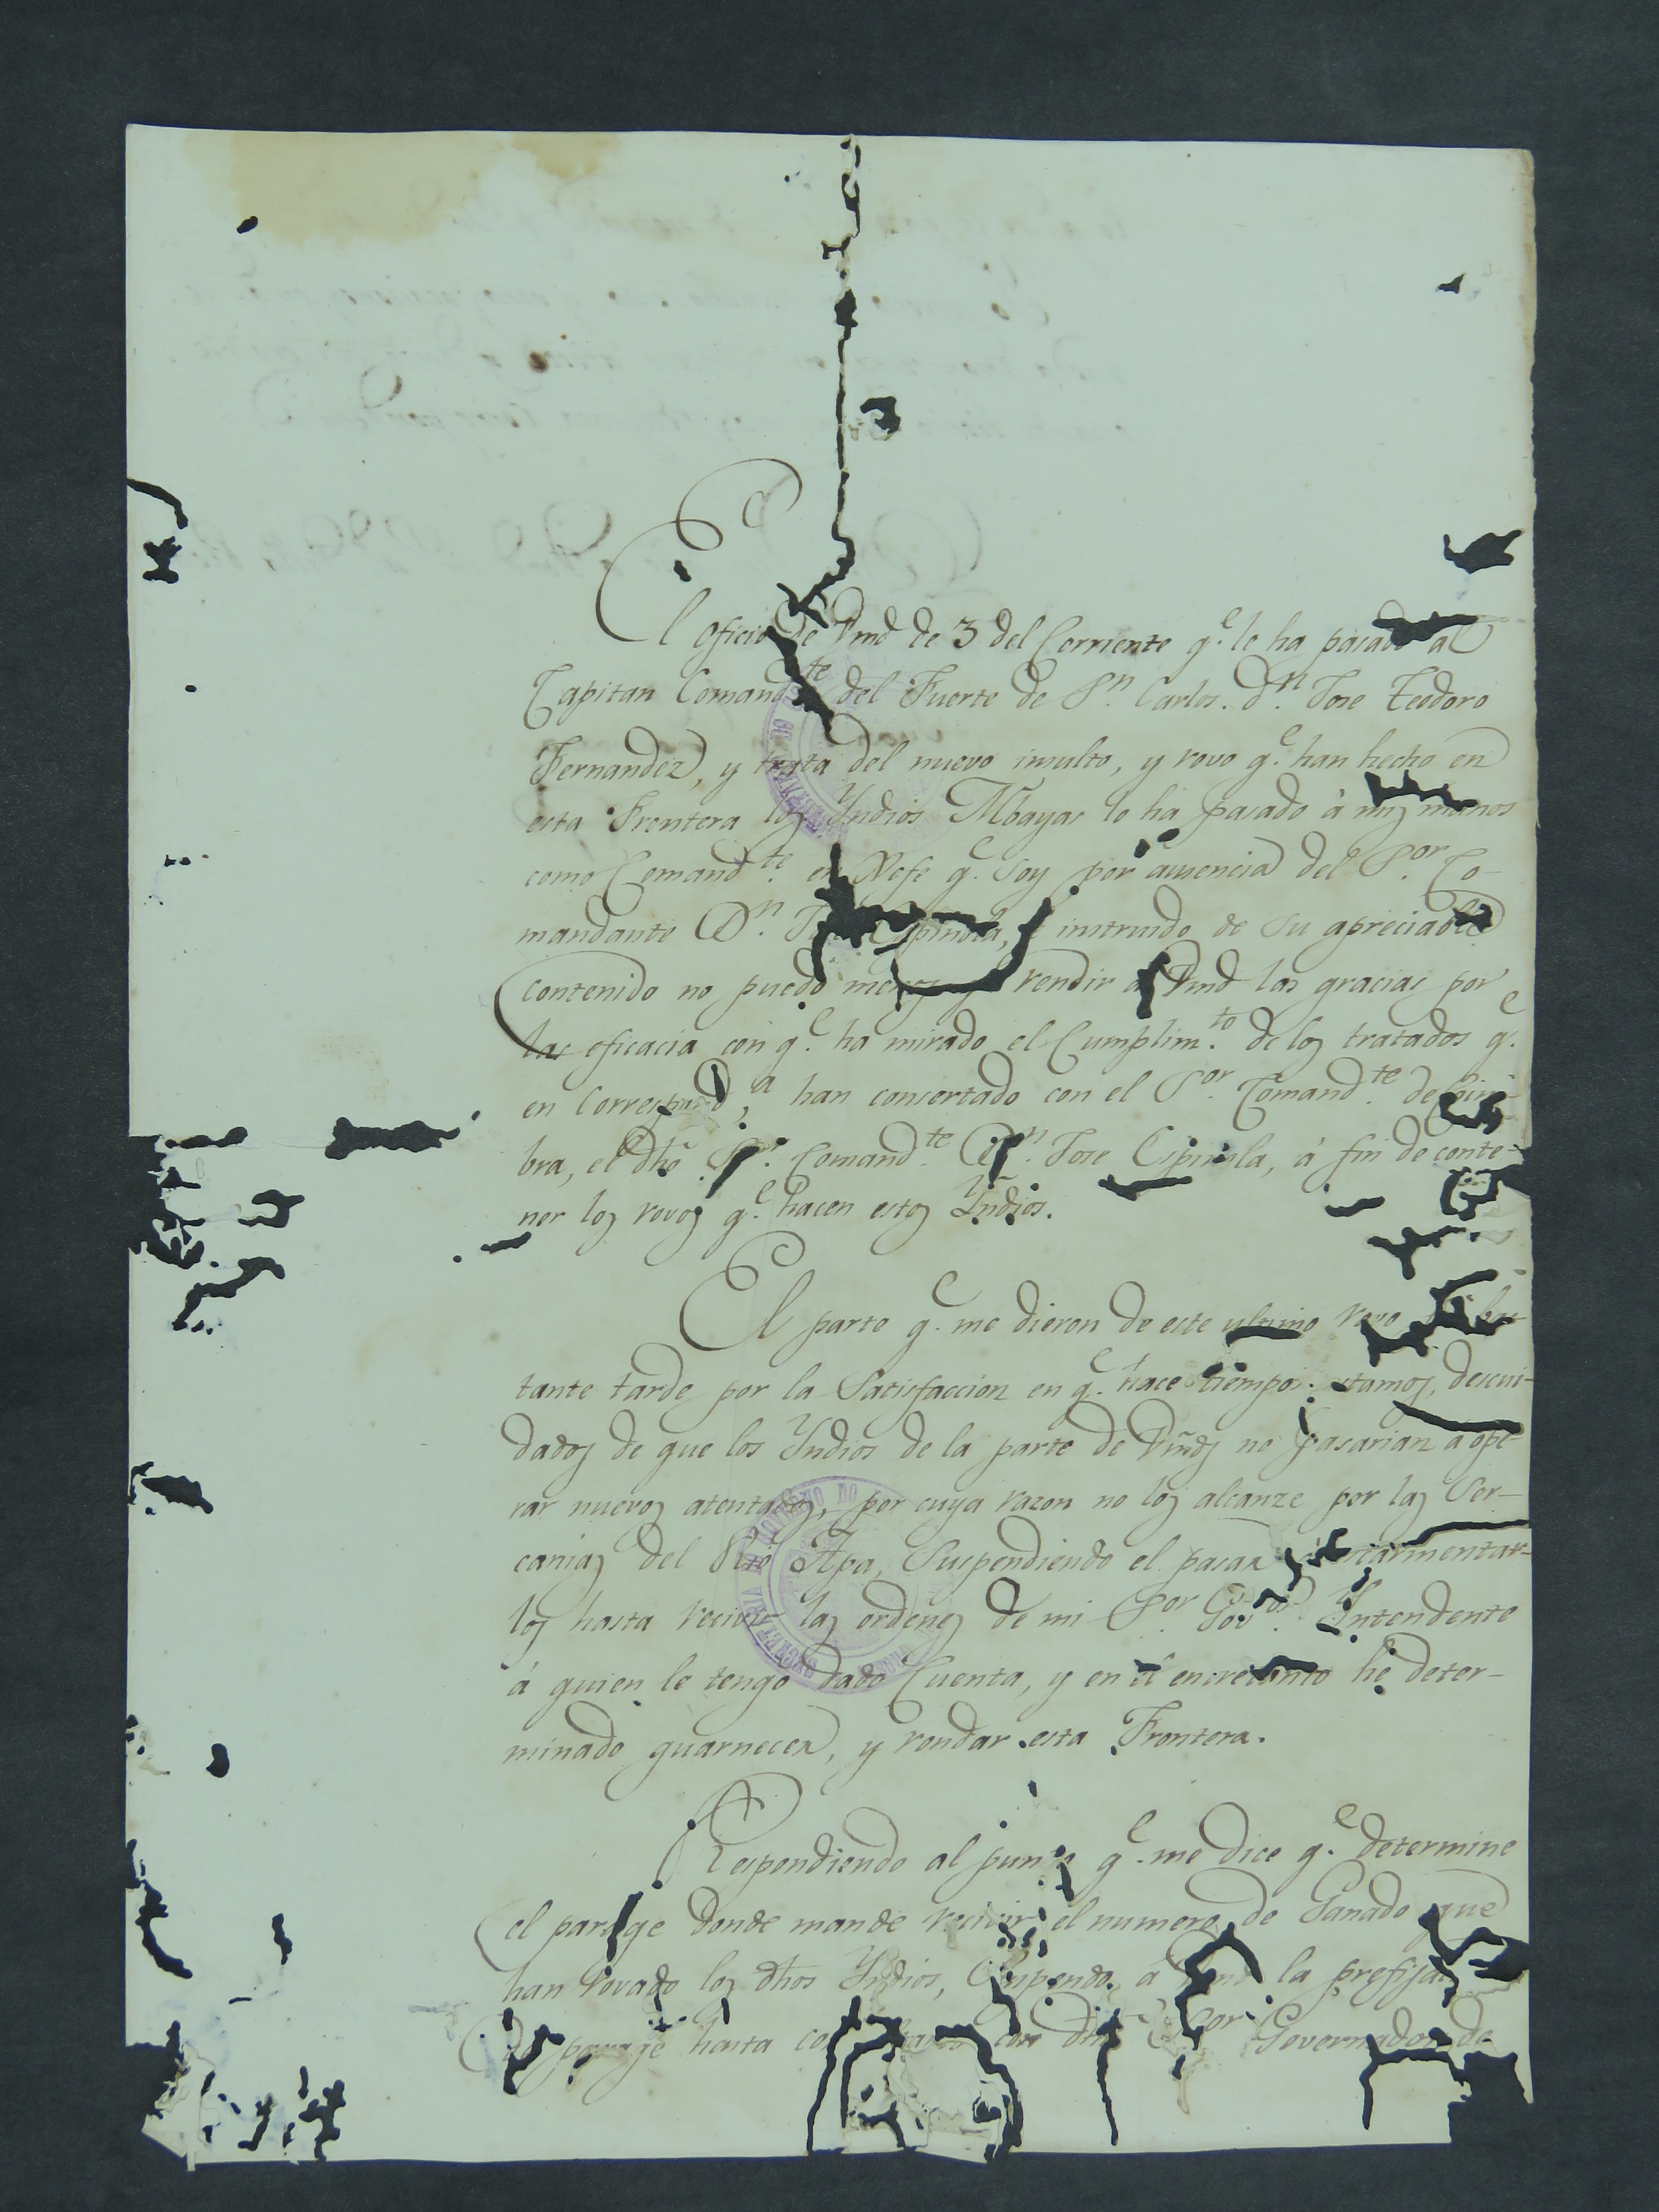 El oficio de Vmd de 3 del Corriente q.e le ha pasado al
Capitan Comand.te del Fuerte de S.n Carlos. d.n Jose Teodoro
Fernandez, y trata del nuevo insulto, y rovo q.e han hecho en
esta Frontera los Yndios Mbayas lo ha pasado à mis manos
como Comand.te en Xefe q.e soy por ausencia del S.or Co-
mandante D.n Espinola, instruido de su apreciable
contenido no puedo menos rendir a Vmd las gracias por
las eficacia con q.e ha mirado el Cumplim.to de los tratados q.e
en Correspond.a han consertado con el S.or Comand.te de
bra, el dho S.or Comand.te D.n Jose Espinola, à fin de conte-
ner los rovos q.e hacen estos Yndios.
El parte q.e me dieron de este ultimo rovo
tante tarde por la Satisfaccion en q.e hace tiempo estamos, descui-
dados de que los Yndios de la parte de Vmds no pasarian a ope-
rar nuevos atentados, por cuya razon no los alcanze por las Ser-
canias del Rio Apa, Suspendiendo el pasar escarmentar-
los hasta recivir las ordenes de mi S.or Gov.or Yntendente
à quien le tengo dado Cuenta, y en el entretanto he deter-
minado guarnecer, y rondar esta Frontera.
Respondiendo al punto q.e me dice q.e determine
el parage donde mande recivir el numero de Ganado que
han rovado los dhos Yndios, Suspendo à la
parage hasta con Governador de